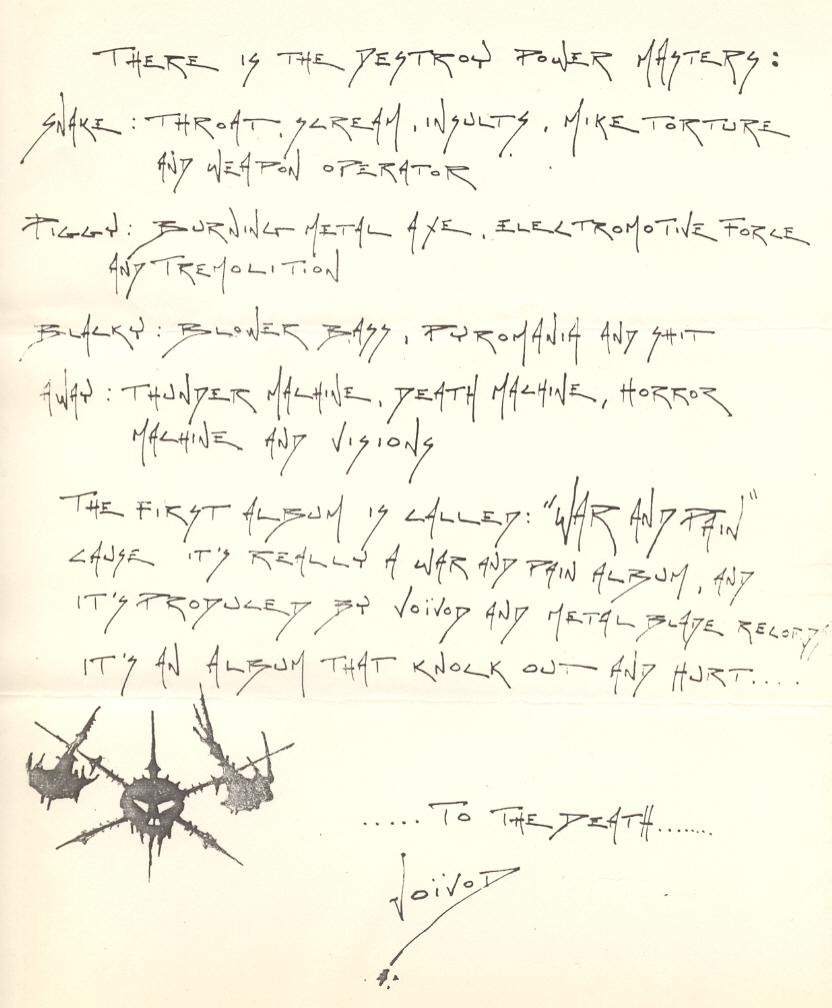 THERE IS THE DESTROY POWER MASTERS:
SNAKE: THROAT, SCREAM, INSULTS, MIKE TORTURE
AND WEAPON OPERATOR
PIGGY: BURNING METAL AXE, ELECTROMOTIVE FORCE
AND TREMOLITION
BLACKY: BLOWER BASS, PYROMANIA AND SHIT
AWAY: THUNDER MACHINE, DEATH MACHINE, HORROR
MACHINE AND VISIONS
THE FIRST ALBUM IS CALLED: "WAR AND PAIN"
CAUSE IT'S REALLY A WAR AND PAIN ALBUM, AND
IT'S PRODUCED BY VOÏVOD AND METAL BLADE RECORDS
IT'S AN ALBUM THAT KNOCK OUT AND HURT....
.....TO THE DEATH.......
VOÏVOD